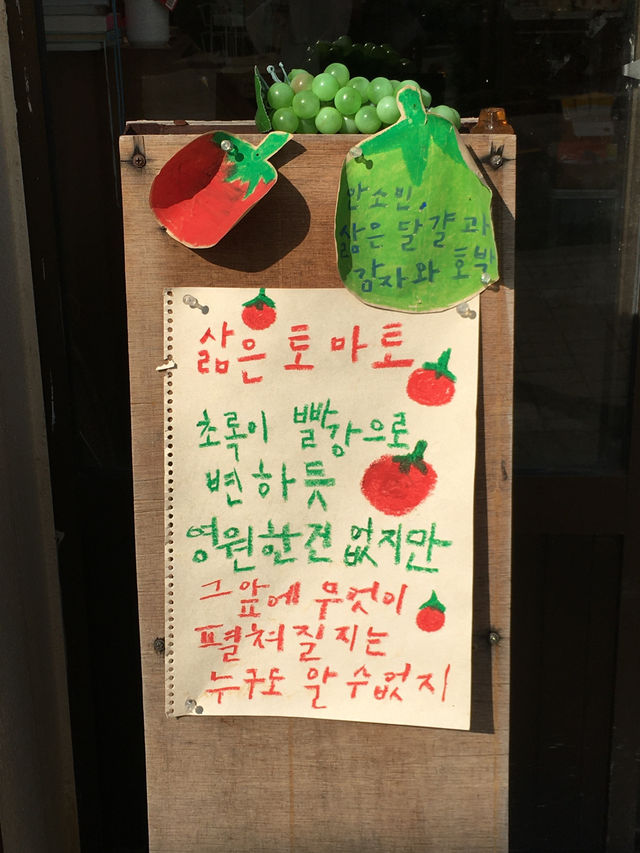 안소빈,
삶은 달걀과
감자와 호박
삶은 토마토
초록이 빨강으로
변하듯
영원한건 없지만
그앞에 무엇이
펼쳐질지는
누구도 알 수없지